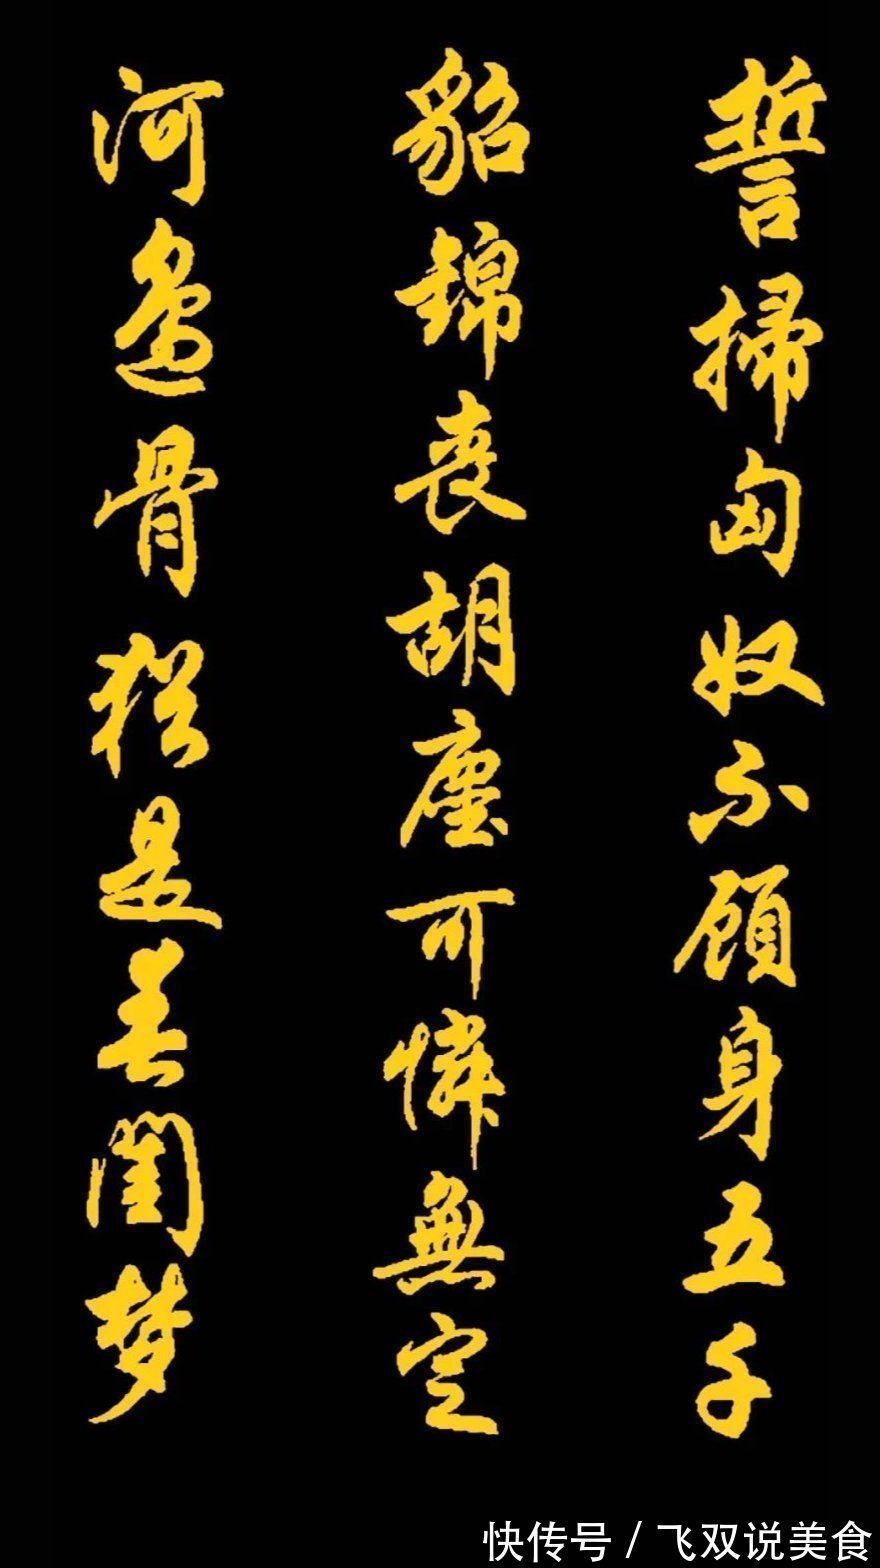 誓掃匈奴不顧身五千
貂錦喪胡塵可憐無定
河邊骨猶是春閨梦
快传号 / 飞双说美食